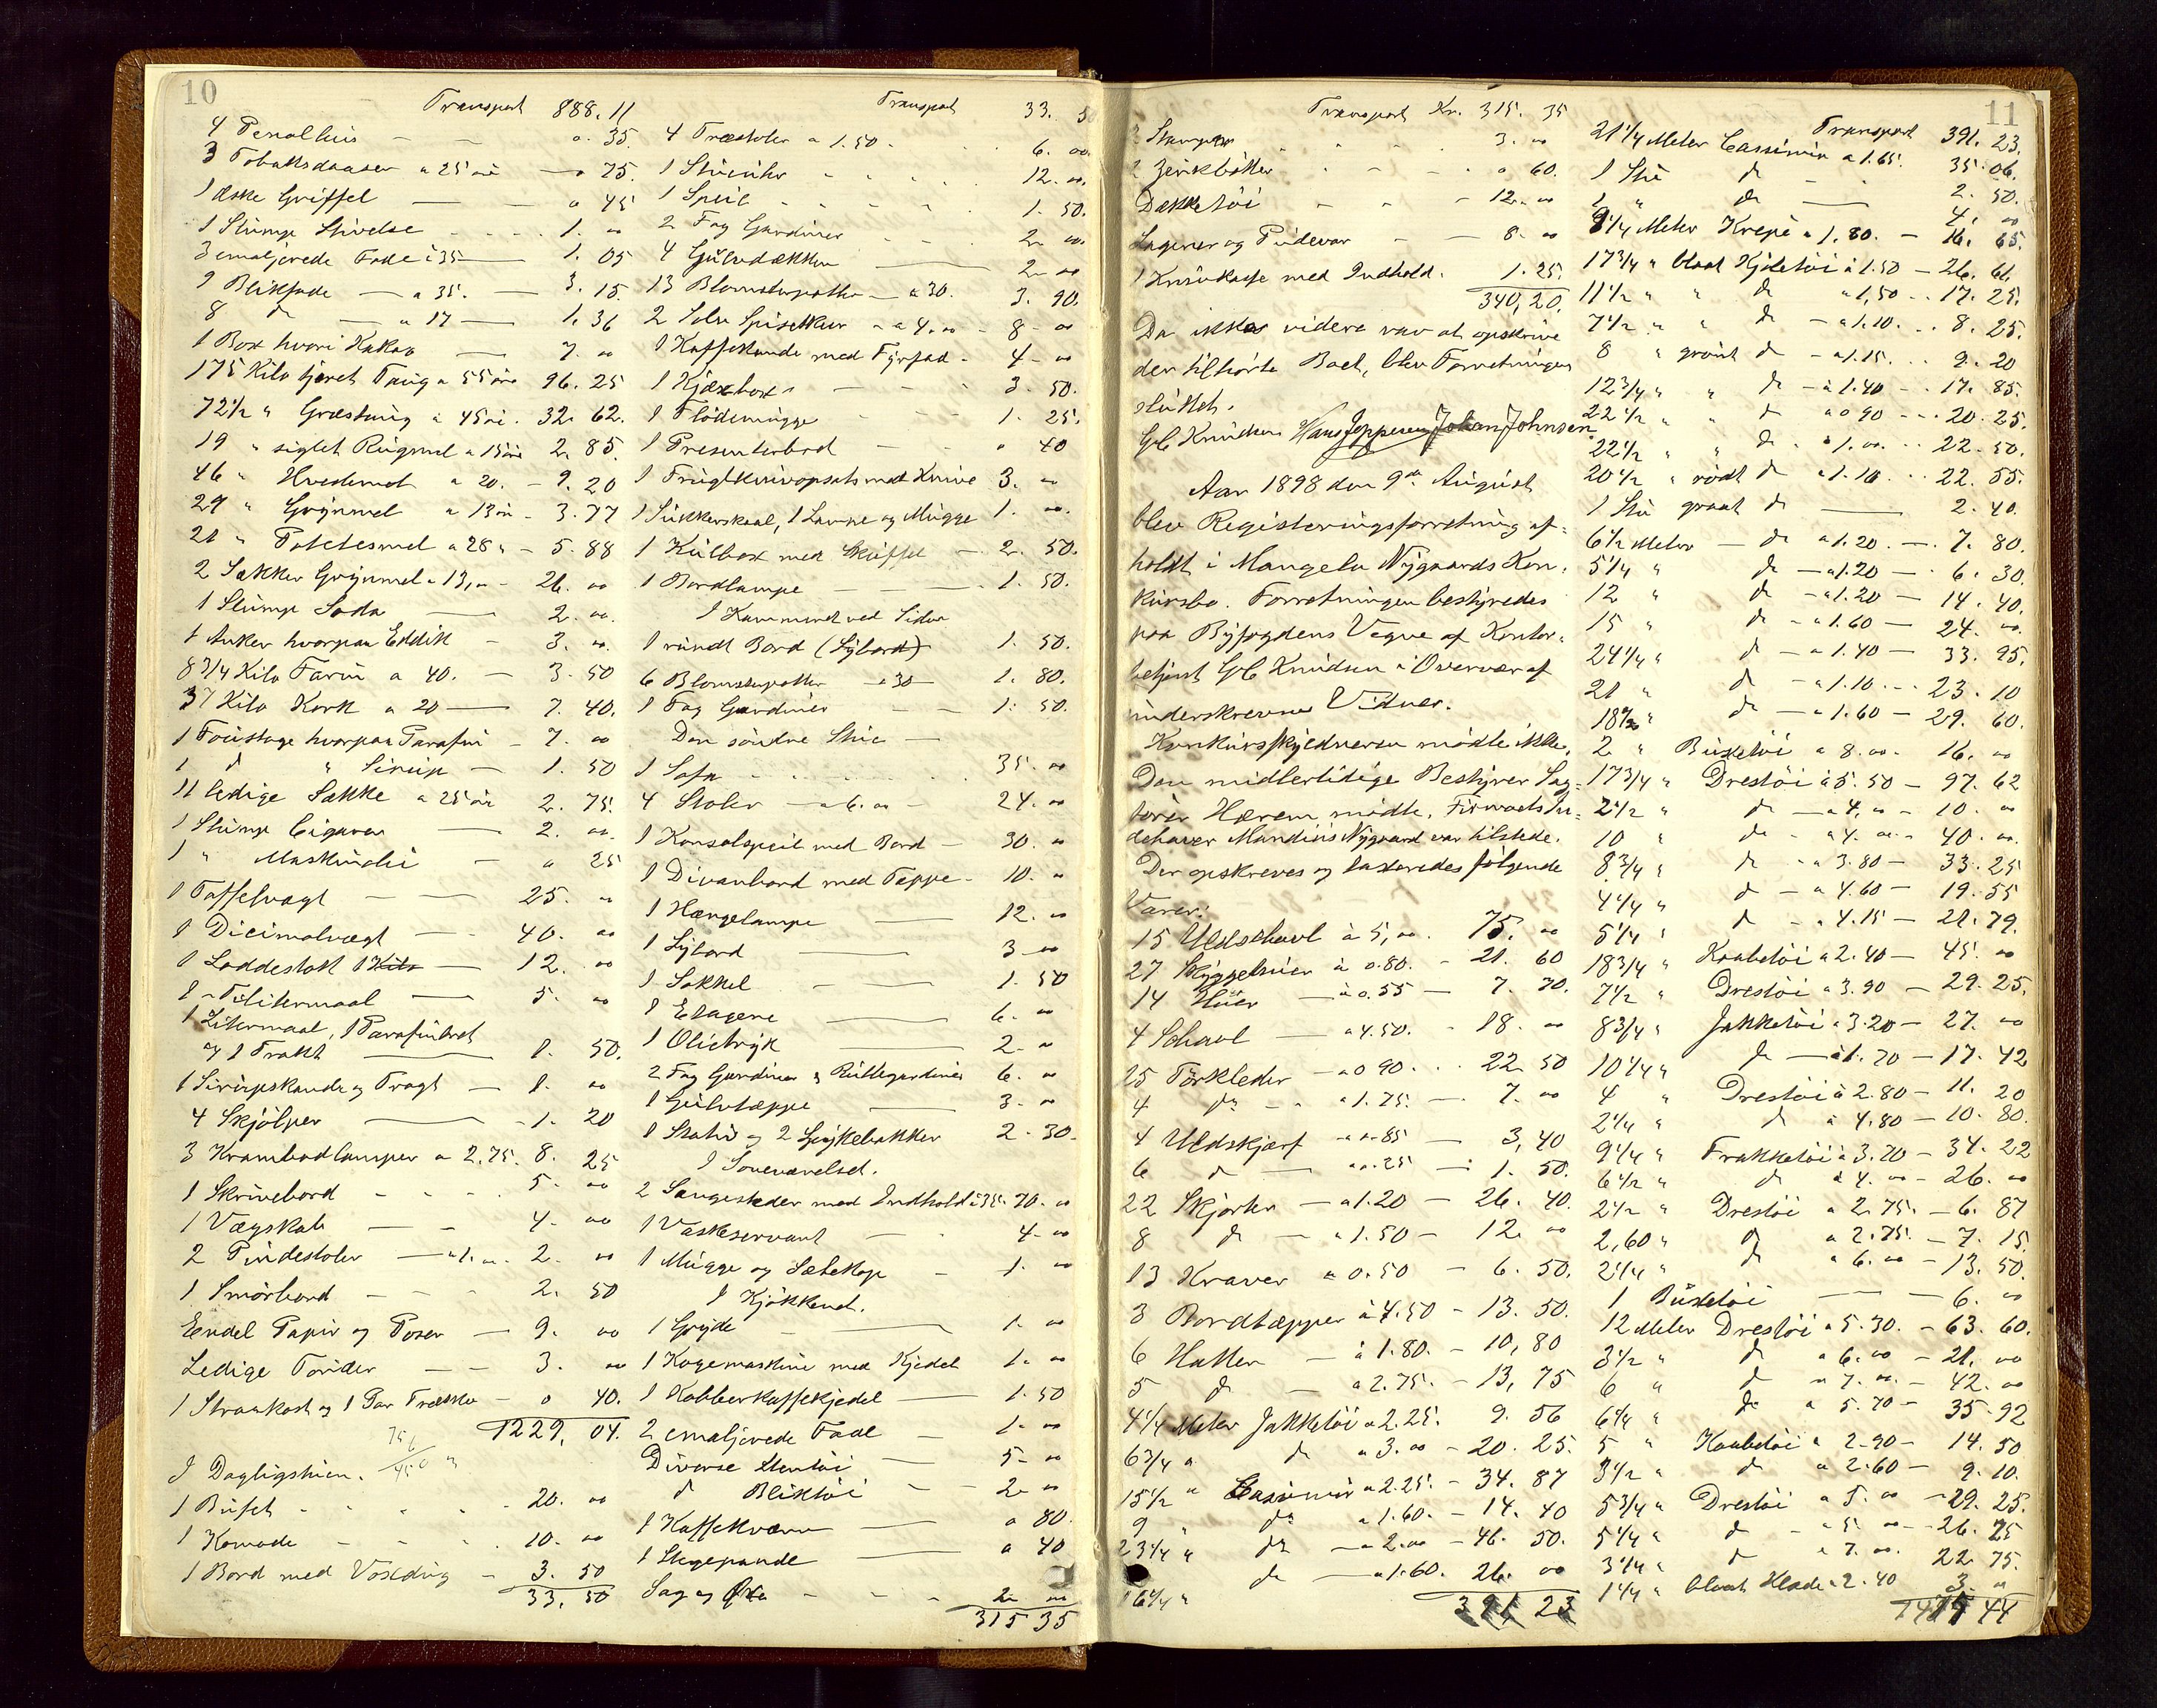 10
Transport 888.11
4 Penalhus — — o. 35.
3 Tobaksdaaser a 25 øre — o 75.
1 æske Griffel — — o 45
1 Slump Stivelse . . . . 1. oo
3 emaljerede Fade à 35 — 1. 05
9 Blikfade — a 35. — 3. 15.
8 do — a 17 — 1. 36
1 Box hvori Kakao — 7. oo
175 Kilo tjæret Taug a 55 øre 96. 25
72 1/2 " Græstaug a 45 øre. 32. 62.
19 " sigtet Rugmel a 15 øre 2. 85.
46 " Hvedemel a 20. — 9. 20
29 " Grynmel a 13 øre — 3. 77
21 " Potetesmel a 28 " — 5. 88
2 Sækker Grynmel a 13,oo — 26. oo
1 Slump Soda — 2. oo.
1 Anker hvorpaa Eddik — 3. oo.
8 3/4 Kilo Farin a 40. — 3. 50
37 Kilo Kork a 20 — 7. 40.
1 Foustage hvorpaa Parafin — 7. oo
1 do " Sirup — 1. 50
11 ledige Sække a 25 øre 2. 75.
1 Slump Cigarer — 2. oo.
1 " Maskinolie — o 25
1 Taffelvægt — — 25. oo
1 Dicimalvægt — 40. oo
1 Loddestokk 1 Kilo — 12. oo
1 Tilitermaal — 5. oo
1 Litermaal, 1 Parafin
og 1 Trakt — 1. 50.
1 Sirupskande og Tragt — 1. oo
4 Skjølper — 1. 20
3 Krambodlamper a 2.75. 8. 25
1 Skrivebord - - . 5. oo
1 Vægskab — — 4. oo
2 Pindestoler — a 1. oo. 2. oo
1 Smørbord - - - 2. 50
Endel Papir og Poser — 9. oo
Ledige Tønder — — 3. oo
1 Straakost og 1 Par Træsko — o 40.
1229, 04.
I Dagligstuen.
1 Bufet - - - - 20. oo
1 Komode - - - . 10. oo
1 Bord med Voxdug — 3. 50
33. 50
Transport 33. 50
4 Træstoler a 1.50 . . . 6. oo.
1 Stueuhr - - - . 12. oo.
1 Speil - - - - . 1. 50.
2 Fag Gardiner - - . 2. oo
4 Gulvdækken — 2. oo
13 Blomsterpotter — a 30. 3. 90.
2 Sølv Spiseskeer — a 4. oo — 8 - oo
1 Kaffekande med Fyrfad - 4 - oo
1 Kjæxbox — — . 3. 50.
1 Flødemugge - - - 1. 25.
1 Presenterbord — " 40
1 Frugtknivopsats med Knive 3. oo
1 Sukkerskaal, 1 Lampe og Mugge 1. oo.
1 Kulbox med Skuffel — 2. 50.
1 Bordlampe — 1. 50.
I Kammeret ved Siden
1 rundt Bord (Sybord) 1. 50.
6 Blomsterpotter — a 30 — 1. 80.
1 Fag Gardiner — — 1. 50.
Den søndre Stue —
1 Sofa - - - - - 35. oo
4 Stoler — a 6. oo — 24. oo
1 Konsolspeil med Bord — 30. oo
1 Divanbord med Teppe - 10. oo
1 Hængelampe — 12. oo
1 Sybord — 3 - oo
1 Sokkel - — 1. 50
1 Etagere — 6. oo
1 Olietryk — 2. oo
2 Fag Gardiner & Rullegardiner 6. oo
1 Gulvtæppe — 3. oo
1 Stativ og 2 Spyttebakker 2. 30.
I Soveværelset.
2 Sengesteder med Indhold à 35. 70. oo
1 Vaskeservant — . 4 - oo
1 Mugge og Sæbekop — 1. oo
I Kjøkkenet.
1 Gryde — 1. oo
1 Kogemaskine med Kjedel 1. oo
1 Kobberkaffekjedel — 1. 50
2 emaljerede Fade — 1. oo
Diverse Stentøi — 5 - oo
do Bliktøi — 2 - oo
1 Kaffekværn — o 80.
1 Stegepande — o 40
Sag og Øxe - - - 2 - oo
315 35
11
Transport Kr. 315. 35
2 Stamper . . . . . 3. oo
2 Zinkbøtter . - - - o 60.
Dækketøi — - - 12. oo
Lagener og Pudevar — — 8. oo
1 Knivkasse med Indhold. 1. 25.
340,20.
Da ikke videre var at opskrive
den tilhørte Boet, blev Forretningen
sluttet.
Gb Knudsen Hans Jeppesen Johan Johnsen.
Aar 1898 den 9de August
blev Registeringsforretning af-
holdt i Mangelu Nygaards Kon-
kursbo. Forretningen bestyredes
paa Byfogdens Vegne af Kontor-
betjent Gb Knudsen i Overvær af
underskrevne Vidner.
Konkursskyldneren mødte ikke.
Den midlertidige Bestyrer Sag-
fører Hærem mødte. Firmaets In-
dehaver Mandius Nygaard var tilstede.
Der opskreves og taxeredes følgende
Varer:
15 Uldschavl à 5,oo. 75. oo
27 Skyggeluer à o.80. - 21. 60
14 Huer — à o.55 — 7. 70.
4 Schavl — a 4.50. - 18. oo
25 Tørklæder — a o 90 . . . 22. 50
4 do — — a 1.75. — 7. oo
4 Uldskjærf — a o.85 — 3,40
6 do — a o.25 — 1. 50.
22 Skjorter — a 1.20 — 26. 40.
8 do — a 1.50 — 12. oo
13 Kraver a 0.50 — 6. 50.
3 Bordtæpper à 4.50 - 13. 50.
6 Hatter — à 1.80. - 10,80
5 do — a 2.75. - 13,75
4 1/4 Meter Jakketøi a 2.25. 9. 56
6 3/4 " do a 3. oo — 20. 25.
15 1/2 " Cassimir a 2.25. - 34. 87
9 " do a 1.60. - 14. 40
23 1/4 " do — a 2. oo — 46. 50.
16 1/4 " do — a 1.60. 26. oo
391 23
Transport 391. 23.
21 1/4 Meter Cassimir a 1.65. 35. 06.
1 Stü do — . 2. 50.
1 " do — 4. oo
9 1/4 Meter Krepe a 1.80. — 16. 65.
17 3/4 " blaat Kjoletøi à 1.50 — 26. 61.
11 1/2 " " do a 1,50 . . 17. 25.
7 1/2 " " do — a 1.10. . . 8. 25.
8 " grønt do — a 1.15. . . 9. 20
12 3/4 " " do — a 1.40 — . 17. 85.
22 1/2 " " do a o 90 - - . 20. 25.
22 1/2 " " do . a 1. oo . . 22. 50.
20 1/2 " rødt do a 1.10 . . . 22. 55.
1 Stü graat do — 2. 40.
6 1/2 Meter — do a 1.20. — . 7. 80.
5 1/4 " do — a 1.20 — . 6. 30.
12 " do — a 1.20 — 14. 40.
15 " do — a 1.60 — 24. oo.
24 1/4 " do — a 1.40 — 33. 95.
21 " do — a 1.10. - . 23. 10
18 1/2 " do — a 1.60 — 29. 60.
2 " Buxetøi a 8. oo. 16. oo
17 3/4 " Drestøi à 5.50 — 97. 62
2 1/2 " do — a 4,oo — 10. oo
10 " do - a 4. oo - 40. oo.
8 3/4 " do - a 3.80 — 33. 25
4 1/4 " do — a 4.60 — 19. 55
5 1/4 " do - a 4.15 — 21. 79.
18 3/4 " Kaabetøi a 2.40 — 45. oo
7 1/2 " Drestøi a 3.90 — 29. 25.
8 3/4 " Jakketøi a 3.20 — 27. oo
10 1/4 " do — à 1.70 — 17. 42
4 " Drestøi à 2.80 — 11. 20
2 1/4 " do à 4.80 — 10. 80.
9 1/4 " Frakketøi à 3.70 — 34. 22
6 1/2 " do à 4. oo — 26. oo
2 1/2 " Drestøi a 2.75. — 6. 87
2,60 " do a 2.75. — 7. 15.
2 1/4 " do a 6. oo — 13. 50.
1 Buxetøi — — 6. oo
12 Meter Drestøi a 5.30. — 63. 60.
3 1/2 " do a 6. oo — 21. oo
6 " do a 7. oo. — 42. oo
6 1/4 " do a 5.70 — 35. 92
5 " Kaabetøi a 2.90 — 14. 50
3 1/2 " do a 2.60 — 9. 10.
5 3/4 " Drestøi a 5. oo — 29. 25.
5 1/4 " do — a 5 oo — 26. 25
3 1/4 " do a 7. oo. 22. 75.
1 1/4 " blaat Klæde a 2.40 3. oo
1415 44